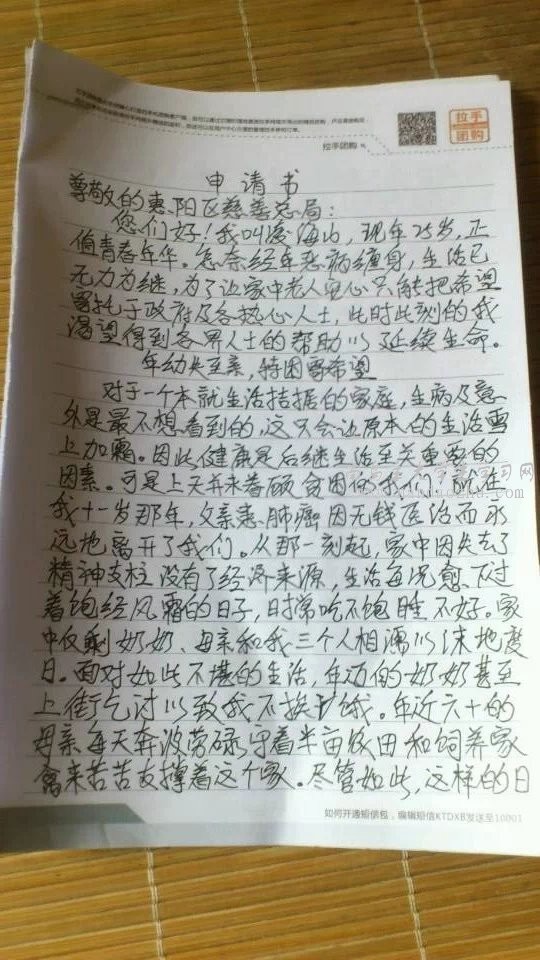 拉手
团购
拉手团购
申请书
尊敬的惠阳区慈善总局:
您们好!我叫海山,现年25岁,正
值青春年华。怎奈经年恶病缠身,生活已
无力为继,为了让家中老人安心只能把希望
寄托于政府及各热心人士,此时此刻的我
渴望得到各界人士的帮助以延续生命。
年幼失至亲,特困寄希望
对于一个本就生活拮据的家庭,生病及意
外是最不想看到的,这只会让原本的生活雪
上加霜。因此健康是后继生活至关重要的
因素。可是上天并未眷顾贫困的我们,就在
我十一岁那年,父亲患肺癌因无钱医治而永
远地离开了我们。从那一刻起,家中因失去了
精神支柱没有了经济来源,生活每况愈下过
着饱经风霜的日子,时常吃不饱睡不好。家
中仅剩奶奶、母亲和我三个人相濡以沫地度
日。面对如此不堪的生活,年迈的奶奶甚至
上街乞讨以致我不挨饥饿。年近六十的
母亲每天奔波劳碌守着半亩饭田和饲养家
禽来苦苦支撑着这个家。尽管如此,这样的日
如何开通短信包,编辑短信KTDXB发送至10001